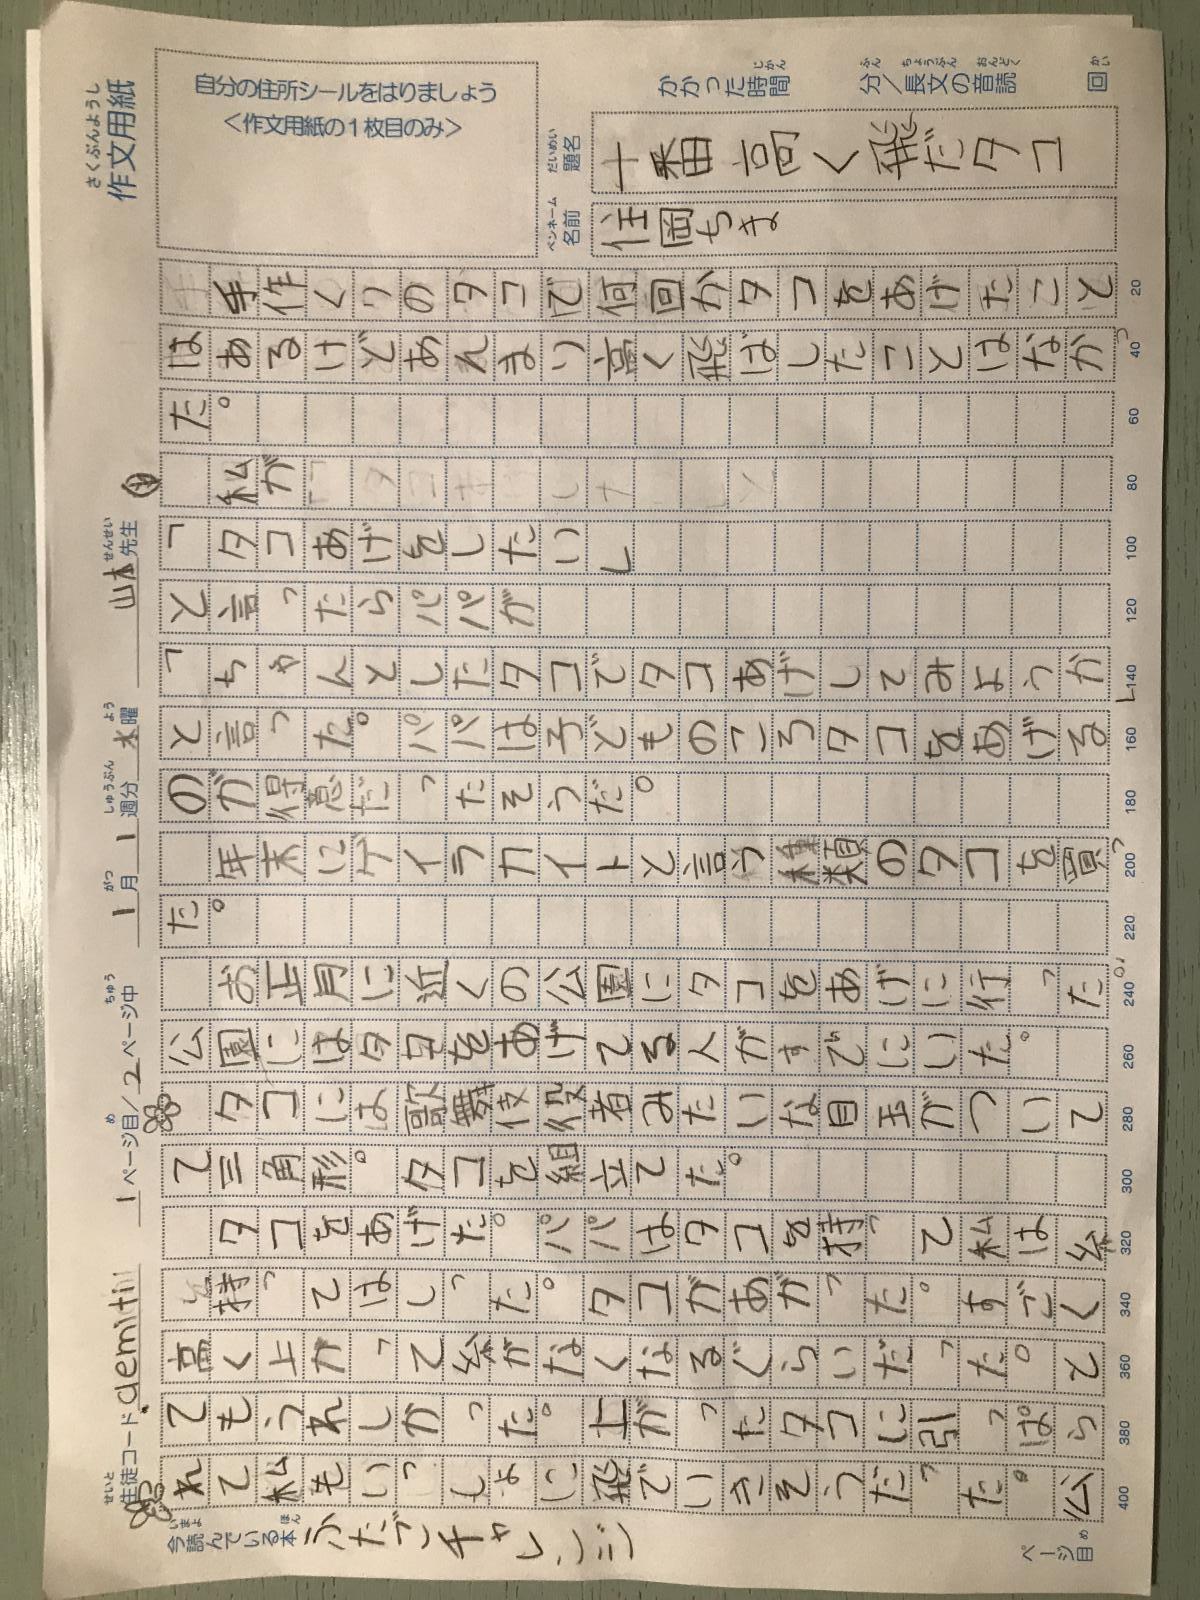 作文用紙
さくぶんようし
自分の住所シールをはりましょう
<作文用紙の1枚目のみ>
かかった時間
じかん
分/長文の音読
ふん ちょうぶん おんどく
回
かい
題名
だいめい
一番高く飛だタコ
ペンネーム
名前
住岡ちま
生徒コード demitiii
せいと
1ページ目/2ページ中
め ちゅう
1月1週分水曜
がつ しゅうぶん よう
山本先生
せんせい
手作くりのタコで何回かタコをあげたこと
20
はあるけどあれまり高く飛ばしたことはなかっ
40
た。
60
私が
80
「タコあげをしたい」
100
と言ったらパパが
120
「ちゃんとしたタコでタコあげしてみようか」
140
と言った。パパは子どものころタコをあげる
160
のが得意だったそうだ。
180
年末にゲイラカイトと言う種類のタコを買っ
200
た。
220
お正月に近くの公園にタコをあげに行った。
240
公園にはタコをあげてる人がすでにいた。
260
タコには歌舞伎役者みたいな目玉がついて
280
て三角形。タコを組立てた。
300
タコをあげた。パパはタコを持って私は糸
320
を持ってはしった。タコがあがった。すごく
340
高く上がって糸がなくなるぐらいだった。と
360
てもうれしかった。上がったタコに引っぱら
380
れて私もいっしょに飛でいきそうだった。公
400
今読んでいる本
いまよ ほん
ふたごチャレンジ
ページ目
め